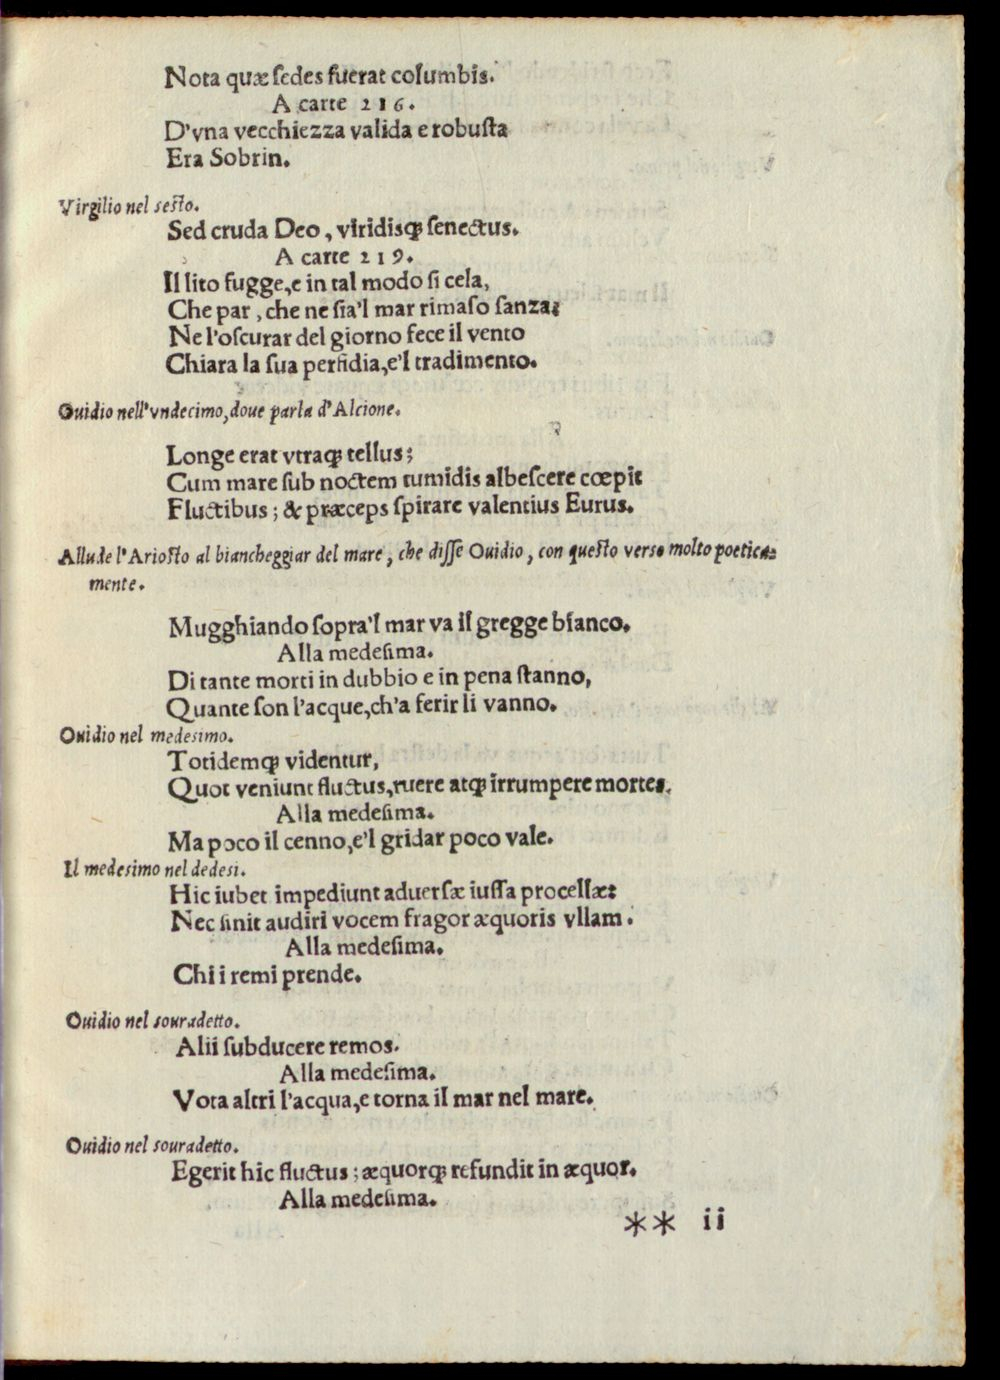 Nota quæ ſedes fuerat columbis.
A carte 216.
D'vna vecchiezza valida e robuſta
Era Sobrin.
Virgilio nel seſto.
Sed cruda Deo, viridisq; ſenectus.
A carte 219.
Il lito fugge, e in tal modo ſi cela,
Che par, che ne ſia'l mar rimaſo ſanza:
Ne l'oſcurar del giorno fece il vento
Chiara la ſua perfidia, e'l tradimento.
Ouidio nell'vndecimo, doue parla d'Alcione.
Longe erat vtraq; tellus;
Cum mare ſub noctem tumidis albeſcere cœpit
Fluctibus; & præceps ſpirare valentius Eurus.
Allude l'Arioſto al biancheggiar del mare, che diſſe Ouidio, con queſto verso molto poetica=
mente.
Mugghiando ſopra'l mar va il gregge bianco.
Alla medeſima.
Di tante morti in dubbio e in pena ſtanno,
Quante ſon l'acque, ch'a ferir li vanno.
Ouidio nel medesimo.
Totidemq; videntur,
Quot veniunt fluctus, ruere atq; irrumpere mortes.
Alla medeſima.
Ma poco il cenno, e'l gridar poco vale.
Il medesimo nel dedesi.
Hic iubet impediunt aduerſæ iuſſa procellæ:
Nec ſinit audiri vocem fragor æquoris vllam.
Alla medeſima.
Chi i remi prende.
Ouidio nel souradetto.
Alii ſubducere remos.
Alla medeſima.
Vota altri l'acqua, e torna il mar nel mare.
Ouidio nel souradetto.
Egerit hic fluctus; æquorq; refundit in æquor.
Alla medeſima.
** ii